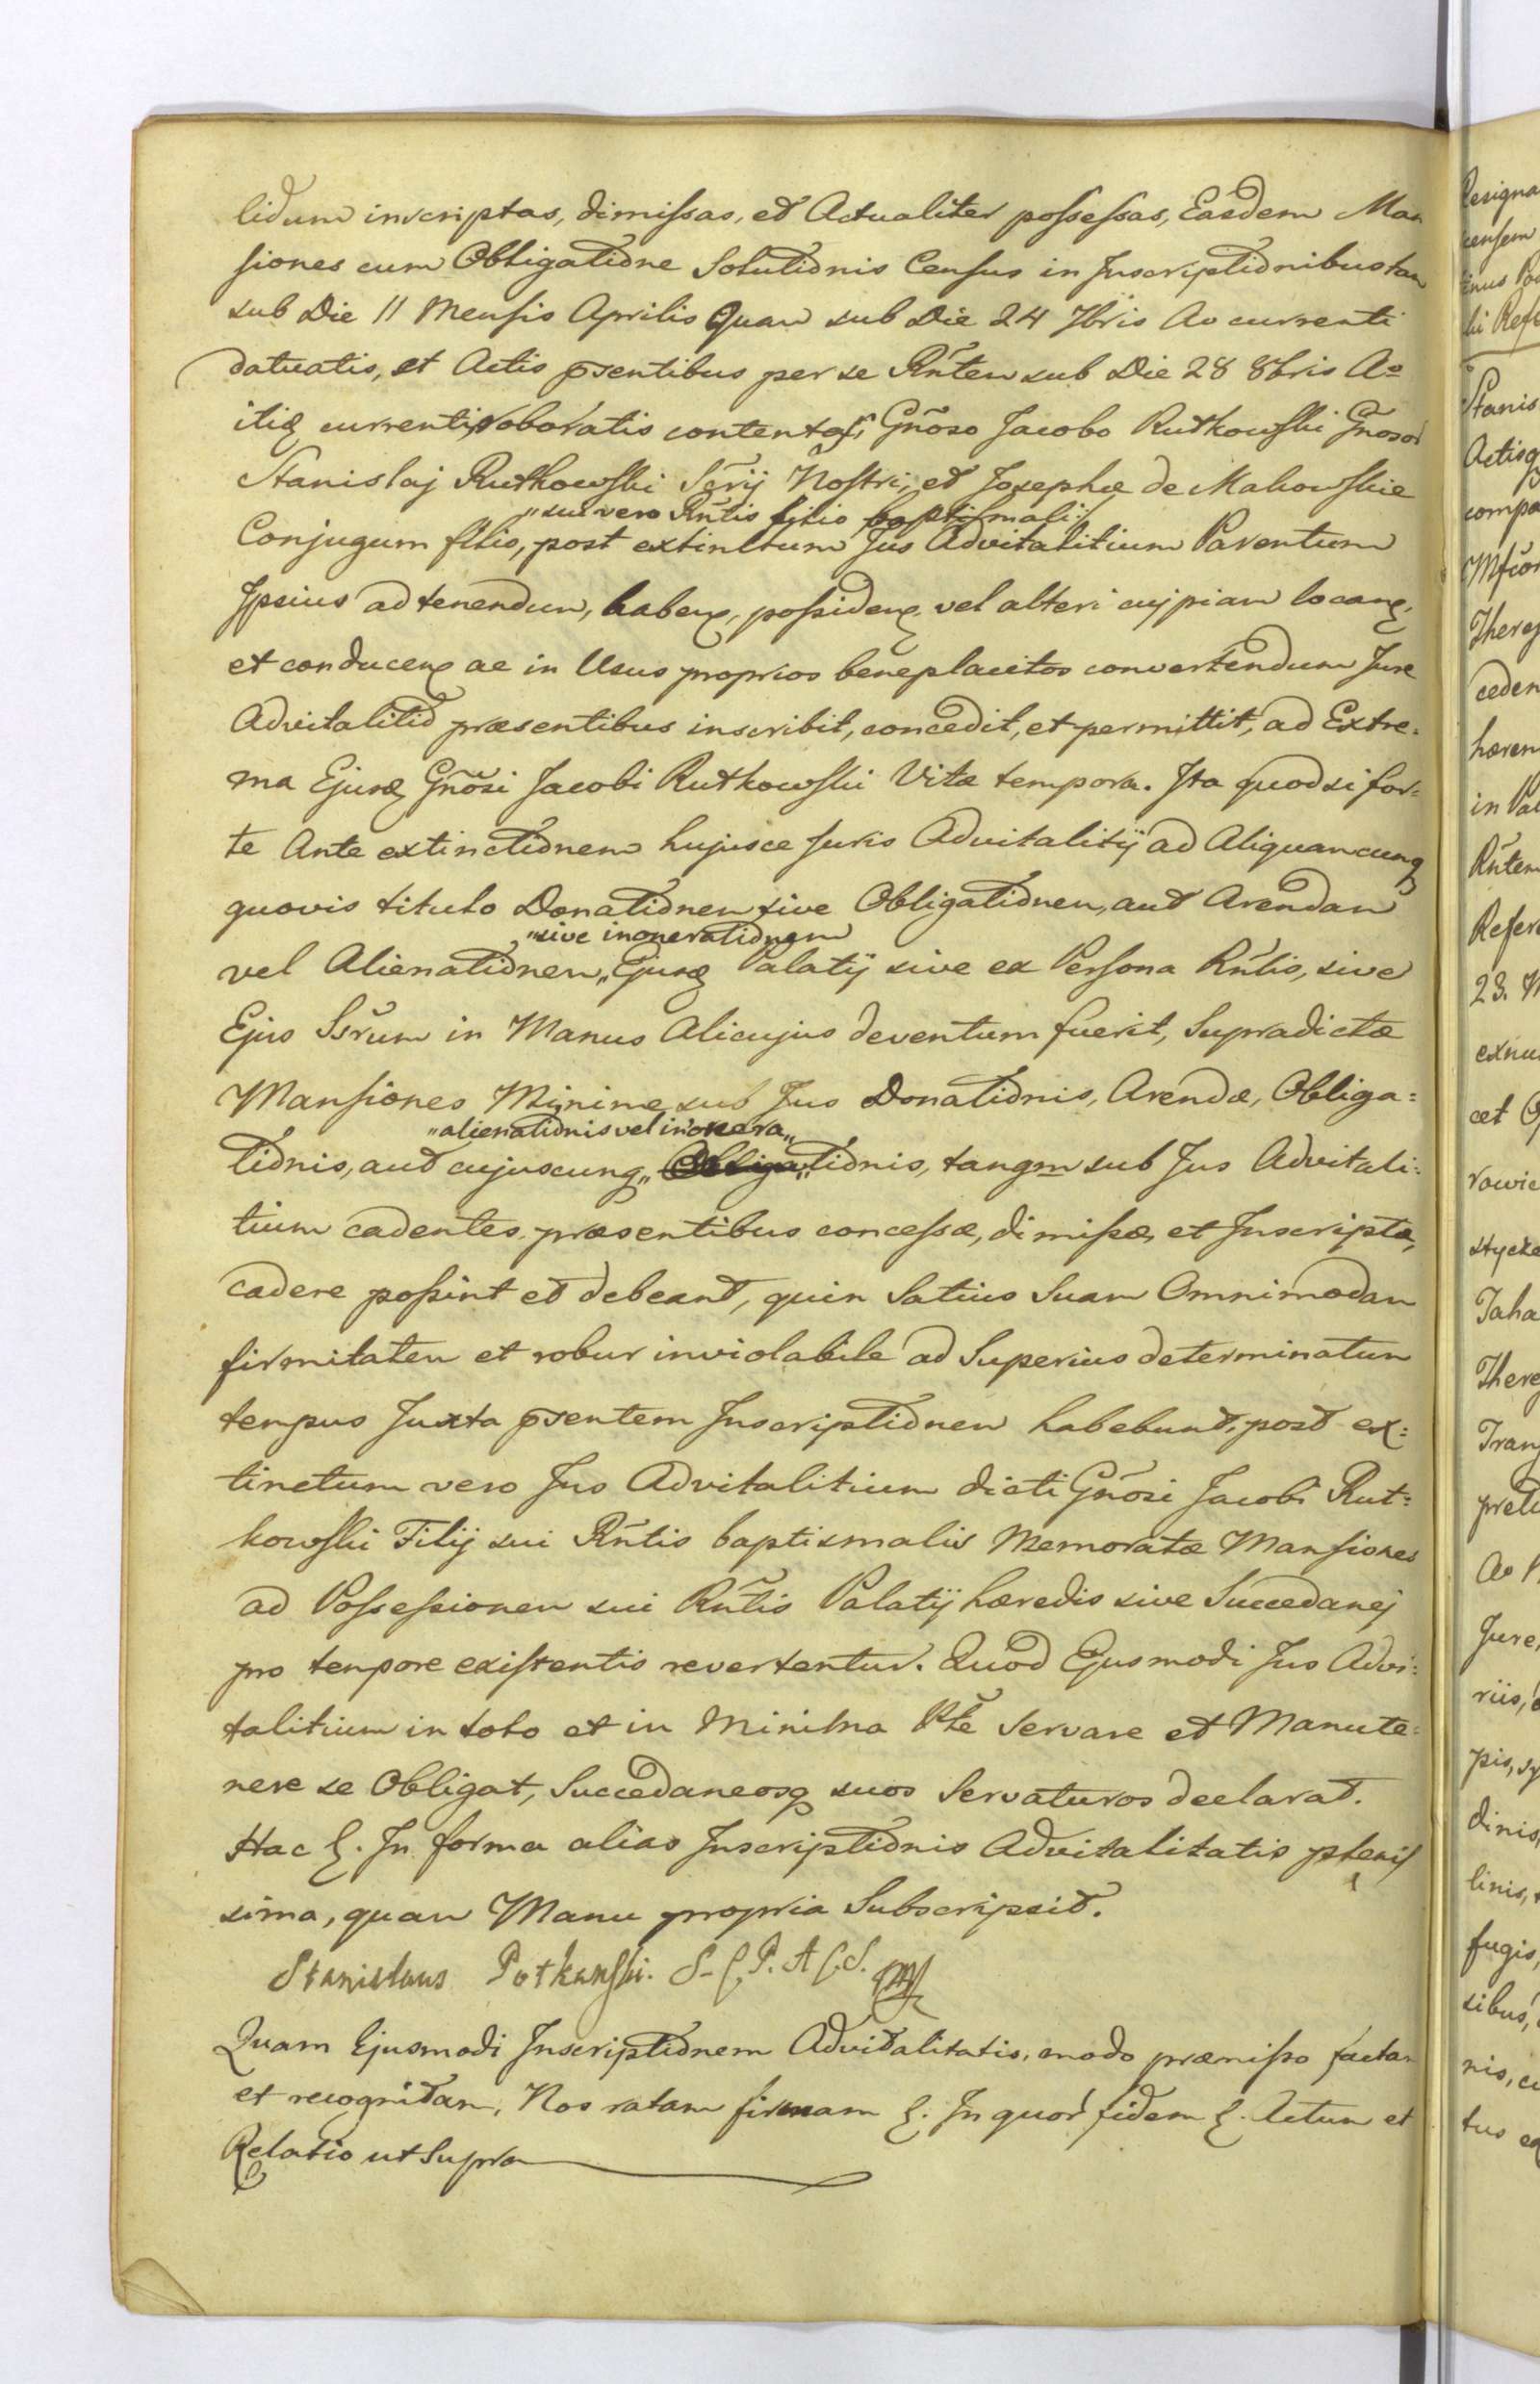 lidum inscriptas, dimissas, et Actualiter possessas, Easdem Man
siones cum Obligatione Solutionis Census in Inscriptionibus tam
sub Die 11 Mensis Aprilis Quam sub Die 24 7bris Ao currenti
datuatis, et Actis pñsentibus per se Rñtem sub Die 28 8bris Ao
itiq currenti, roboratis contentas, Gñoso Jacobo Rutkowski Gñosor
Stanislaj Rutkowski Sĕrij Nostri, et Josephæ de Makowskie
„sui vero Rñtis filio baptismali:/
Conjugum filio, post extinctum Jus Advitalitium Parentum
Ipsius ad tenendum, habenq, possidenq vel alteri cujpiam locanq,
et conducenq ac in Usus proprios beneplacitos convertendum Jure
Advitalitio præsentibus inscribit, concedit, et permittit, ad Extre-
ma Ejusq Gñosi Jacobi Rutkowski Vitæ tempora. Ita quod si for-
te Ante extinctionem hujusce Juris Advitalitij ad Aliquamcunq
quovis titulo Donationem sive Obligationem, aut Arendam
„sive inonerationem
vel Alienationem „ Ejusq Palatij sive ex Persona Rñtis, sive
Ejus Ssrum in Manus Alicujus deventum fuerit, Supradictæ
Mansiones Minime sub Jus Donationis, Arendæ, Obliga:
„alienationis vel inonera„
tionis, aut cujuscunq „ Obliga„tionis, tanqm sub Jus Advitali:
tium cadentes, præsentibus concessæ, dimissæ, et Inscriptæ,
cadere possint et debeant, quin Satius Suam Omnimodam
firmitatem et robur inviolabile ad Superius determinatum
tempus Juxta pñsentem Inscriptionem habebunt, post ex:
tinctum vero Jus Advitalitium dicti Gñosi Jacobi Rut:
kowski Filij sui Rñtis baptismalis Memoratæ Mansiones
ad Possessionem sui Rñtis Palatij hæredis sive Succedanej
pro tempore existentis revertentur. Quod Ejusmodi Jus Advi:
talitium in toto et in Minima Pte Servare et Manute:
nere se Obligat, Succedaneosq suos Servaturos declarat.
Hac &. In forma alias Inscriptionis Advitalitatis plenis
sima, quam Manu propria Subscripsit.
Stanislaus Potkanski. S. C. P. A C. S. mp
Quam Ejusmodi Inscriptionem Advitalitatis, modo præmisso factam
et recognitam, Nos ratam firmam &. In quor fidem &. Actum et
Relatio ut Supra